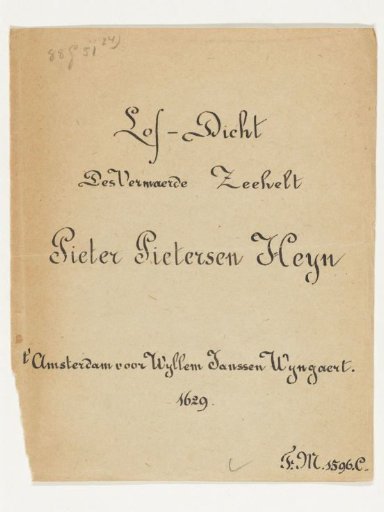 88 g 51 24)
Lof - Dicht
Des Vermaerde Zeehelt
Pieter Pietersen Heyn
t'Amsterdam voor Wyllem Janssen Wyngaert.
1629.
F.M. 1596.C.